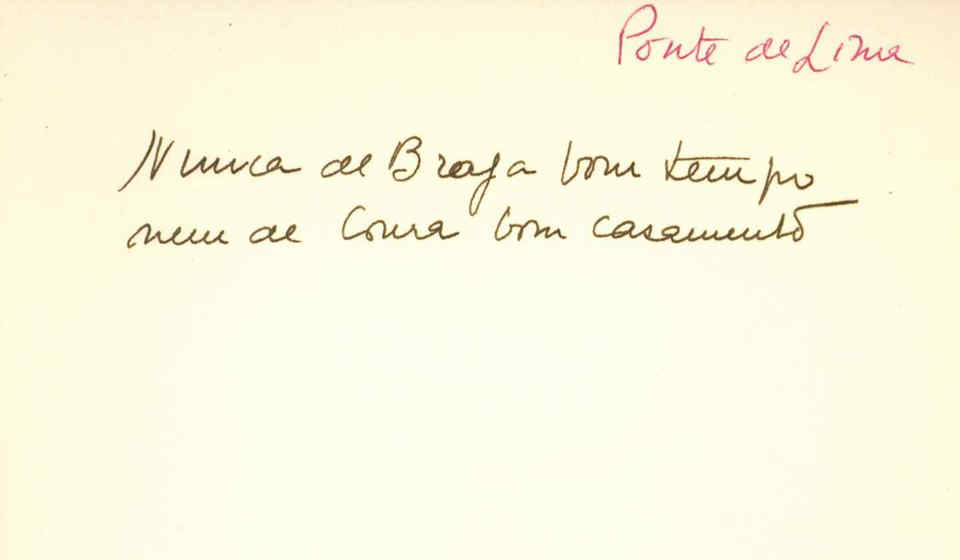 Ponte de Lima
Nunca de Braga bom tempo
nem de Coura bom casamento